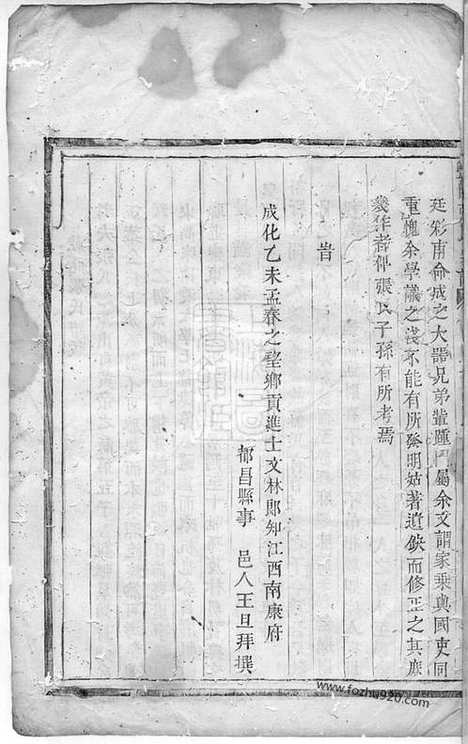 廷彩甫俞成之大器兄弟輩踵門屬余文謂家乘與國史同
重愧余學識之淺不能有所發明姑著遺缺而修正之其庶
幾作者俾張氏子孫有所考焉
旹
成化乙未孟春之望鄉貢進士文林郎知江西南康府
都昌縣事 邑人王旦拜撰
www.fozhu920.com